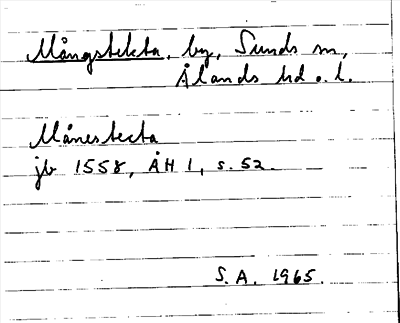 Mångstekta, by, Sunds sn,
Ålands hd o. l.
Månestecta
jb 1558, ÅH 1, s. 52.
S.A. 1965.